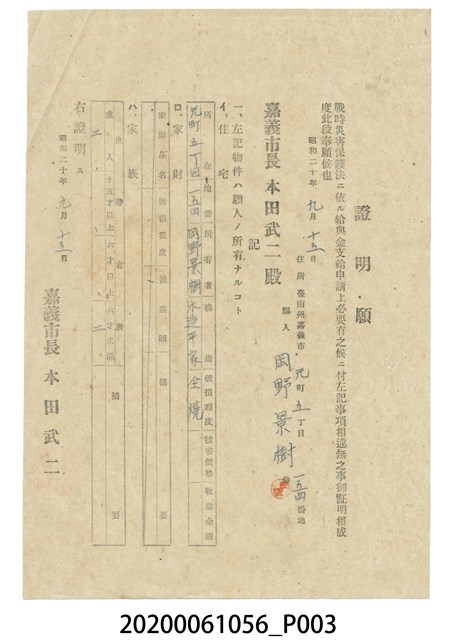 證明願
戰時災害保護法ニ依ル給與金支給申請上必要有之候ニ付左記事項相違無之事御証明相成
度此段奉願候也
昭和二十年九月十五日
住所 臺南州嘉義市元町五丁目一五四番地
願人 岡野景樹
嘉義市長 本田武二殿
記
一、左記物件ハ願人ノ所有ナルコト
イ、住宅
所在地番 所有者 構造 被損程度 被害價格
元町五丁目一五四 岡野景樹 木造平家 全燒
ロ、家財
家財品名 被損程度 摘要
ハ、家族
世帶者數 摘要
右證明ス
昭和二十年九月十五日
嘉義市長 本田武二
20200061056_P003